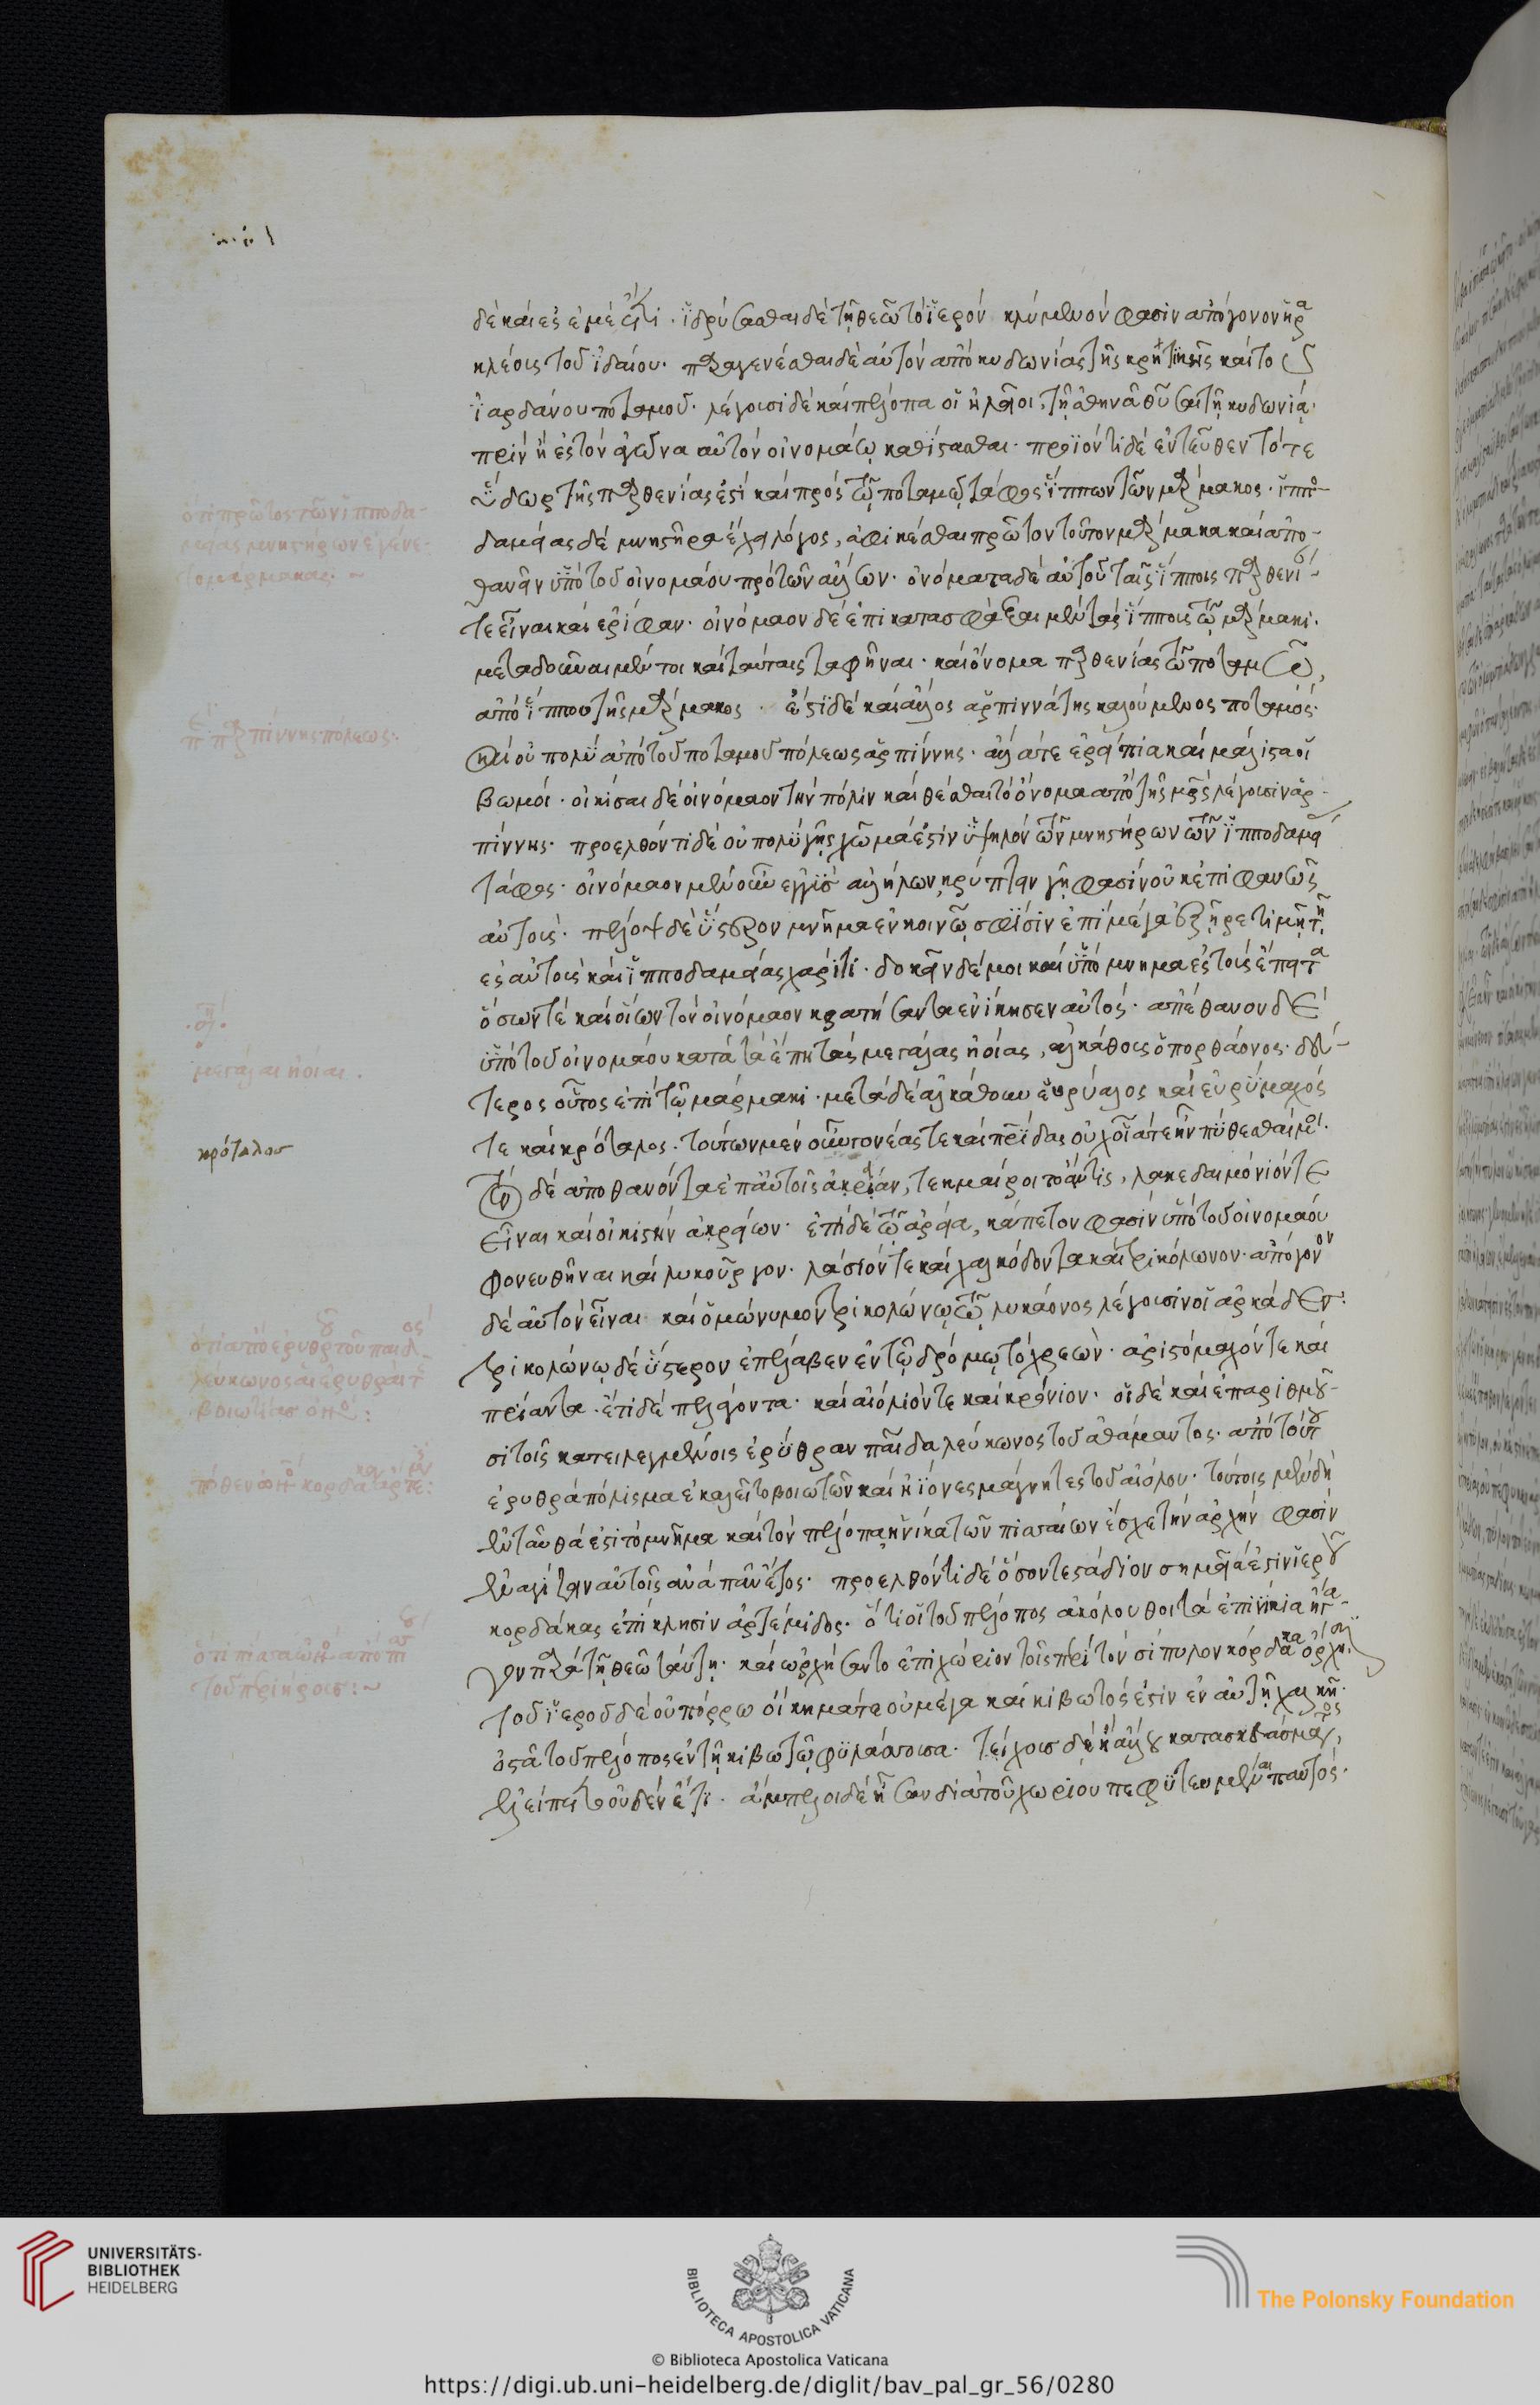 δὲ καὶ ἐς ἐμὲ ἔτι. ἱδρύσασθαι δὲ τῇ θεῷ τὸ ἱερὸν κλύμενόν φασιν ἀπόγονον ἡρα
κλέους τοῦ ἰδαίου. παραγενέσθαι δὲ αὐτὸν ἀπὸ κυδωνίας τῆς κρητικῆς καὶ το
ἰαρδάνου ποταμοῦ. λέγουσι δὲ καὶ πέλοπα οἱ ἠλεῖοι, τῇ ἀθηνᾷ θῦσαι τῇ κυδωνίᾳ.
πρὶν ἢ ἐς τὸν ἀγῶνα αὐτὸν οἰνομάῳ καθίστασθαι. προϊόντι δὲ ἐντεῦθεν τό τε
ὕδωρ τῆς παρθενίας ἐστὶ καὶ πρὸς τῷ ποταμῷ τάφος ἵππων τῶν μάρμακος. ἱππο-
δαμείας δὲ μνηστῆρα ἔχει λόγος, ἀφικέσθαι πρῶτον τοῦτον μάρμακα καὶ ἀπο-
θανεῖν ὑπὸ τοῦ οἰνομάου πρὸ τῶν ἄλλων. ὀνόματα δὲ αὐτοῦ ταῖς ἵπποις παρθενί-
τε εἶναι καὶ ἐρίφαν. οἰνόμαον δὲ ἐπικατασφάξαι μὲν τὰς ἵππους τῷ μάρμακι.
μεταδοῦναι μέντοι καὶ ταύταις ταφῆναι. καὶ ὄνομα παρθενίας τῷ ποταμῷ,
ἀπὸ ἵππου τῆς μάρμακος. ἔστι δὲ καὶ ἄλλος ἁρπιννάτης καλούμενος ποταμός.
καὶ οὐ πολὺ ἀπὸ τοῦ ποταμοῦ πόλεως ἁρπίννης. ἄλλα τε ἐρείπια καὶ μάλιστα οἱ
βωμοί. οἰκίσαι δὲ οἰνόμαον τὴν πόλιν καὶ θέσθαι τὸ ὄνομα ἀπὸ τῆς μητρὸς λέγουσιν ἁρ-
πίννης. προελθόντι δὲ οὐ πολὺ γῆς χῶμά ἐστιν ὑψηλὸν τῶν μνηστήρων τῶν ἱπποδαμεί
τάφος. οἰνόμαον μὲν οὖν ἐγγὺς ἀλλήλων κρύπτειν γῇ φασιν οὐκ ἐπιφανῶς
αὐτούς. πέλοψ δὲ ὕστερον μνῆμα ἐν κοινῷ σφίσιν ἐπὶ μέγα ἐξῆρε τιμῇ τῇ
ἐς αὐτοὺς καὶ ἱπποδαμείας χάριτι. δοκεῖν δέ μοι καὶ ὑπόμνημα ἐς τοὺς ἔπειτα
ὅσων τε καὶ οἵων τὸν οἰνόμαον κρατήσαντα ἐνίκησεν αὐτός. ἀπέθανον δὲ
ὑπὸ τοῦ οἰνομάου κατὰ τὰ ἔπη τὰς μεγάλας ἠοίας, ἀλκάθους ὁ πορθάονος. δεύ-
τερος οὗτος ἐπὶ τῷ μάρμακι. μετὰ δὲ ἀλκάθουν εὐρύαλος καὶ εὐρύμαχός
τε καὶ κρόταλος. τούτων μὲν οὖν γονέας τε καὶ πατρίδας οὐχ οἷά τε ἦν πυθέσθαι μοι.
τὸν δὲ ἀποθανόντα ἐπ' αὐτοῖς ἀκρίαν, τεκμαίροιτο ἄν τις, λακεδαιμόνιόν τε
εἶναι καὶ οἰκιστὴν ἀκρειῶν. ἐπὶ δὲ τῷ ἀκρίᾳ, κάπετον φασὶν ὑπὸ τοῦ οἰνομάου
φονευθῆναι καὶ λυκοῦργον. λάσιόν τε καὶ χαλκόδοντα καὶ τρικόλωνον. ἀπόγονον
δὲ αὐτὸν εἶναι καὶ ὁμώνυμον τρικολώνῳ τῷ λυκάονος λέγουσιν οἱ ἀρκάδες.
τρικολώνῳ δὲ ὕστερον ἐπέλαβεν ἐν τῷ δρόμῳ τὸ χρεὼν. ἀριστόμαχόν τε καὶ
πρίαντα. ἔτι δὲ πελάγοντα. καὶ αἰόλιόν τε καὶ κρόνιον. οἱ δὲ καὶ ἐπαριθμοῦ-
σι τοῖς κατειλεγμένοις ἐρύθραν παῖδα λεύκωνος τοῦ ἀθάμαντος. ἀπὸ τούτου
ἐρυθραὶ πόλισμα ἐκαλεῖτο βοιωτῶν καὶ ἠϊόνες μάγνητες τοῦ αἰόλου. τούτοις μὲν δὴ
ἐνταῦθά ἐστι τὸ μνῆμα καὶ τὸν πέλοπα ἡνίκα τῶν πισαίων ἔσχε τὴν ἀρχὴν φασὶν
ἐναγίζειν αὐτοῖς ἀνὰ πᾶν ἔτος. προελθόντι δὲ ὅσον τε στάδιον σημεῖά ἐστιν ἱεροῦ
κορδάκας ἐπίκλησιν ἀρτέμιδος. ὅτι οἱ τοῦ πέλοπος ἀκόλουθοι τὰ ἐπινίκια ἤγα-
γον παρὰ τῇ θεῷ ταύτῃ. καὶ ὠρχήσαντο ἐπιχώριον τοῖς περὶ τὸν σίπυλον κόρδακα ὄρχησιν
τοῦ ἱεροῦ δὲ οὐ πόρρω οἴκημά τε οὐ μέγα καὶ κιβωτός ἐστιν ἐν αὐτῇ χαλκῆ.
ὀστᾶ τοῦ πέλοπος ἐν τῇ κιβωτῷ φυλάσσουσι. τείχους δὲ ἢ ἄλλου κατασκευάσματος
ἐλείπετο οὐδὲν ἔτι. ἄμπελοι δὲ ἦσαν διὰ τοῦ χωρίου πεφυτευμέναι παντός.
ὅτι πρῶτος τῶν ἱπποδα-
μείας μνηστήρων ἐγένε-
το μάρμακας. ~
μεγάλαι ἠοῖαι.
κρόταλος
UNIVERSITÄTS-
BIBLIOTHEK
HEIDELBERG
BIBLIOTECA APOSTOLICA VATICANA
© Biblioteca Apostolica Vaticana
The Polonsky Foundation
https://digi.ub.uni-heidelberg.de/diglit/bav_pal_gr_56/0280